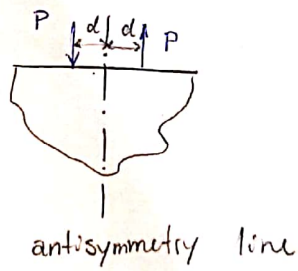 P d d P
antisymmetry line